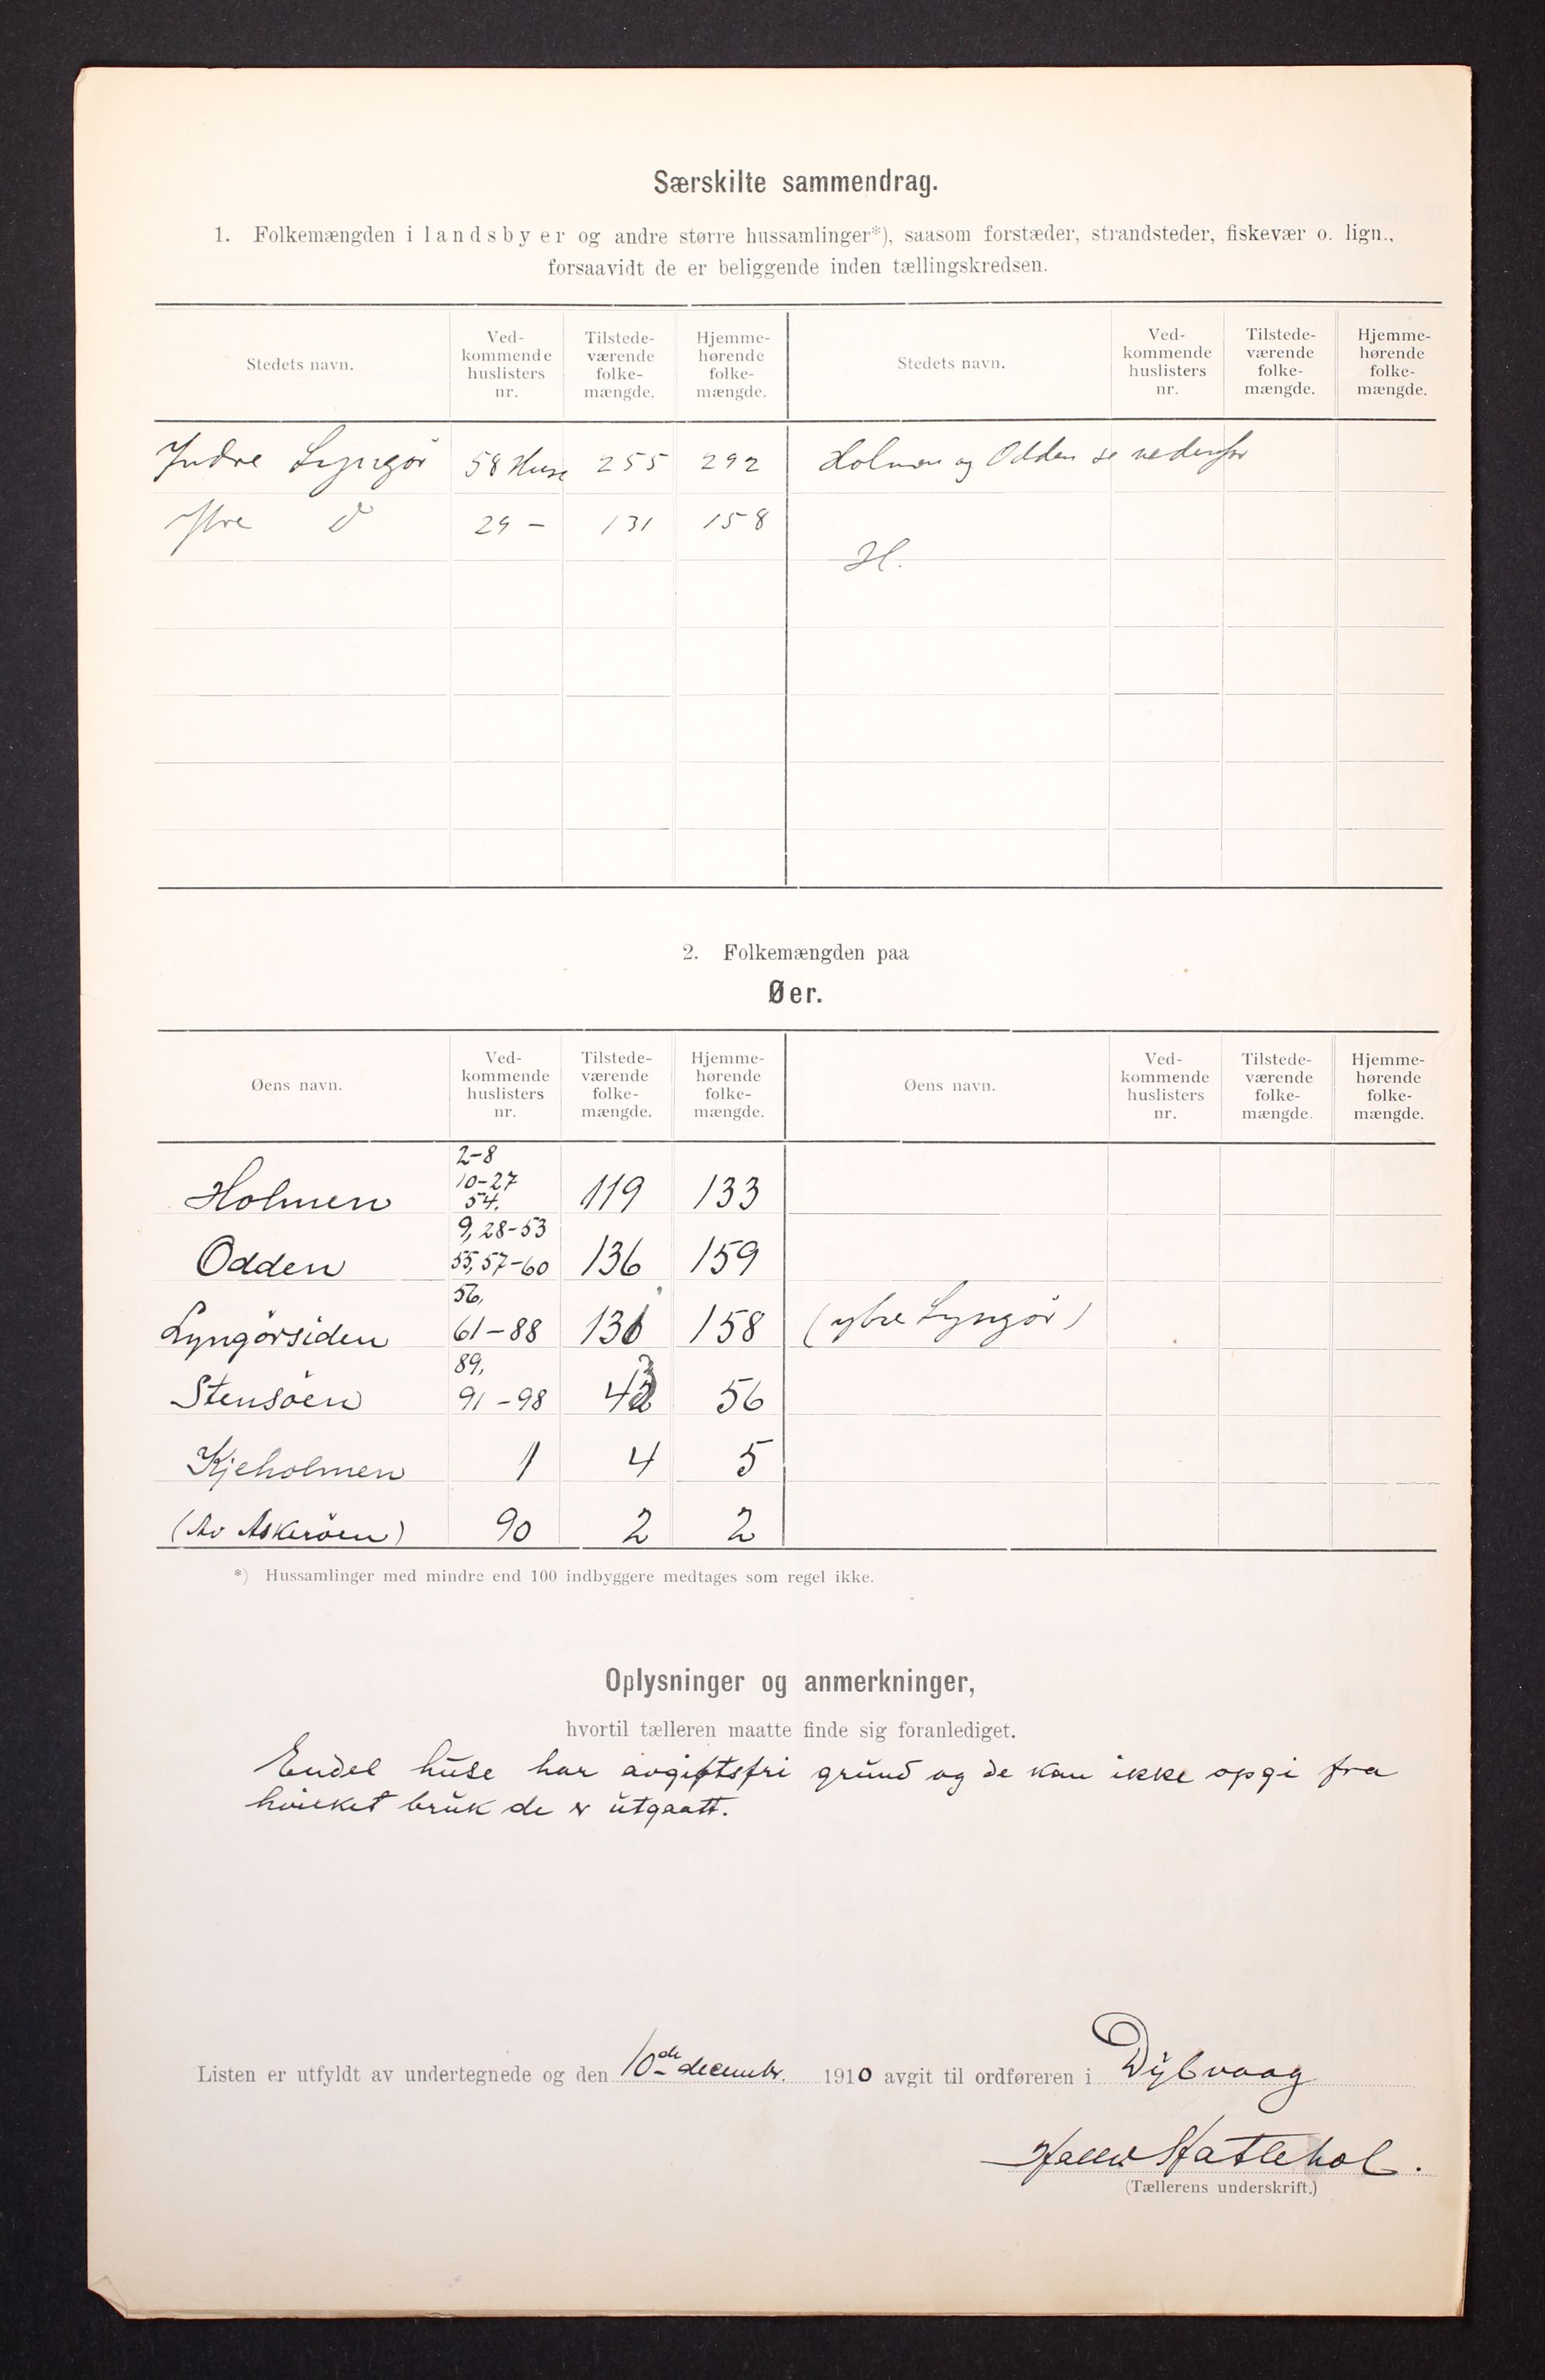 Særskilte sammendrag.
1. Folkemængden i landsbyer og andre større hussamlinger*), saasom forstæder, strandsteder, fiskevær o. lign.,
forsaavidt de er beliggende inden tællingskredsen.
Stedets navn. Ved-kommende huslisters nr. Tilstede-værende folke-mængde. Hjemme-hørende folke-mængde. Stedets navn. Ved-kommende huslisters nr. Tilstede-værende folke-mængde. Hjemme-hørende folke-mængde.
Indre Lyngør 58 Huse 255 292 Holmen og Odden se nedenfor
Ytre d 29 - 131 158
H.
2. Folkemængden paa
Øer.
Øens navn. Ved-kommende huslisters nr. Tilstede-værende folke-mængde. Hjemme-hørende folke-mængde. Øens navn. Ved-kommende huslisters nr. Tilstede-værende folke-mængde. Hjemme-hørende folke-mængde.
2-8
10-27
Holmen 54. 119 133
9, 28-53
Odden 55, 57-60 136 159
56,
Lyngörsiden 61-88 131 158 (ytre Lyngør)
89,
Stensöen 91-98 43 56
Kjeholmen 1 4 5
(Av Askeröen) 90 2 2
*) Hussamlinger med mindre end 100 indbyggere medtages som regel ikke.
Oplysninger og anmerkninger,
hvortil tælleren maatte finde sig foranlediget.
Endel huse har avgiftsfri grund og de kan ikke opgi fra
hvilket bruk de er utgaatt.
Listen er utfyldt av undertegnede og den 10de decembr. 1910 avgit til ordføreren i Dybvaag
Hatlehol.
(Tællerens underskrift.)